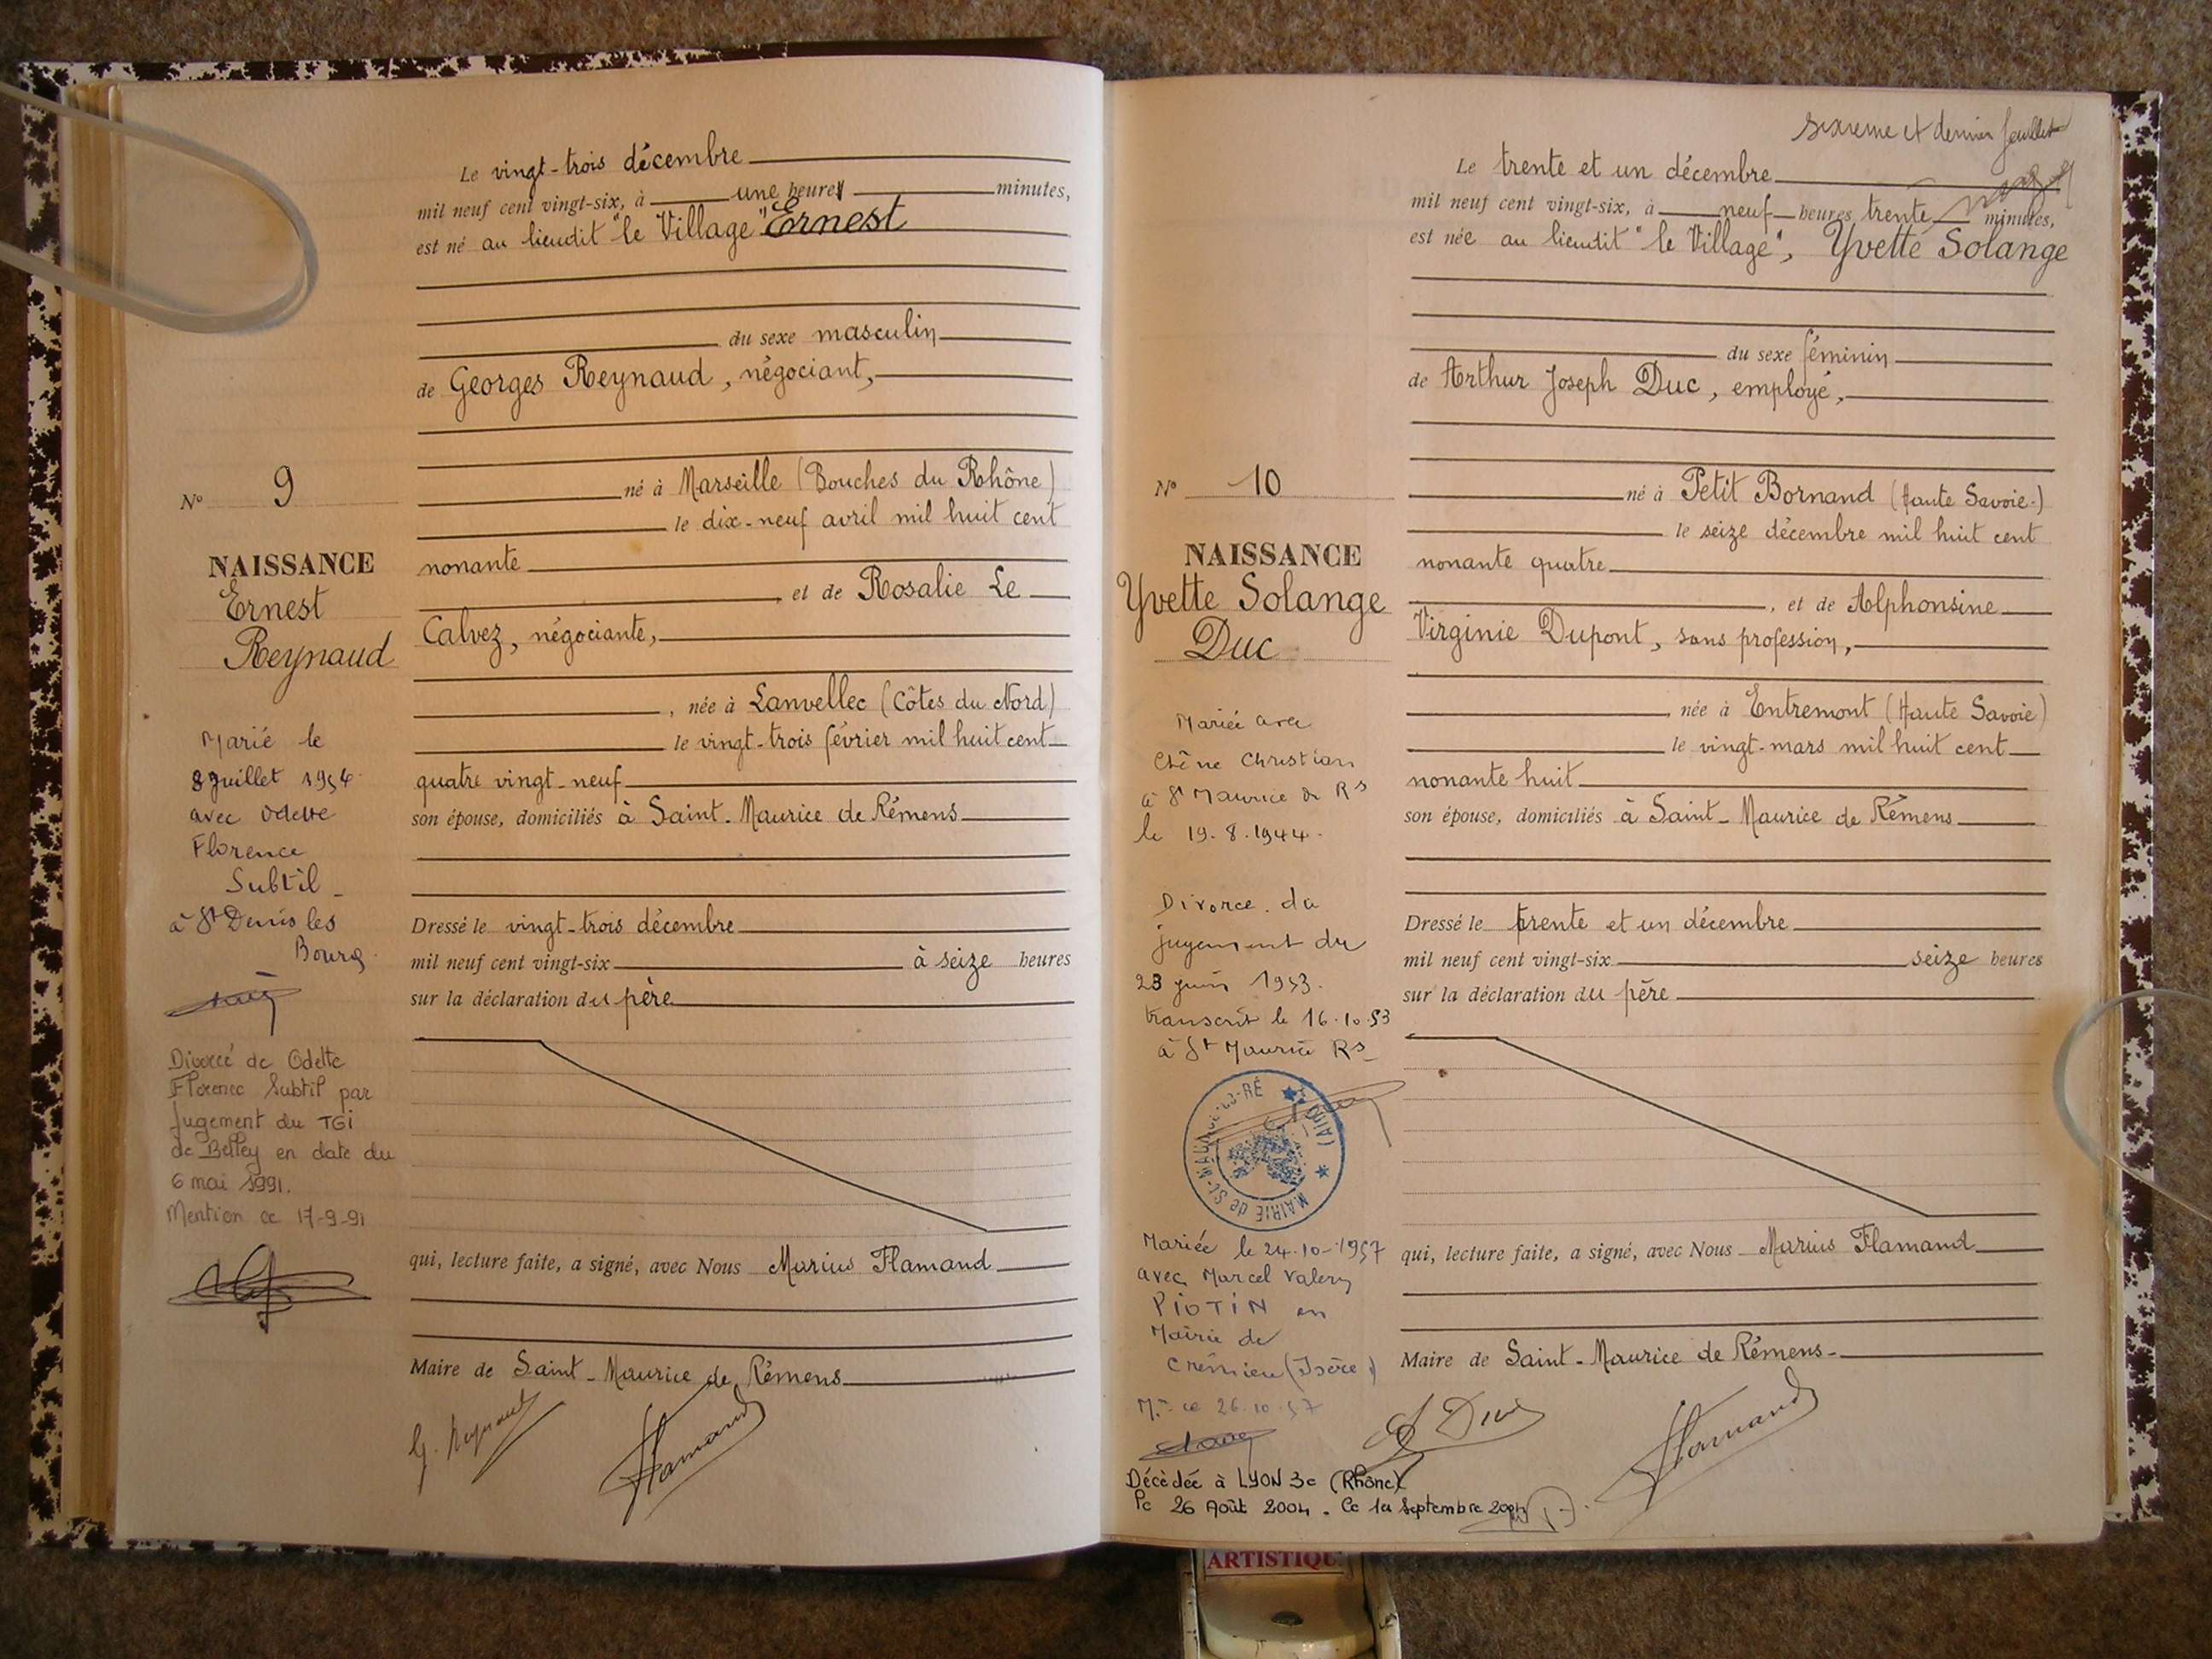 Le vingt-trois décembre
mil neuf cent vingt-six, à une heures minutes,
est né au lieudit "le Village" Ernest
du sexe masculin
de Georges Reynaud, négociant,
né à Marseille (Bouches du Rhône)
le dix-neuf avril mil huit cent
nonante
et de Rosalie Le
Calvez, négociante,
, née à Lanvellec (Côtes du Nord)
le vingt-trois février mil huit cent
quatre vingt-neuf
son épouse, domiciliés à Saint-Maurice de Rémens
Dressé le vingt-trois décembre
mil neuf cent vingt-six à seize heures
sur la déclaration du père
qui, lecture faite, a signé, avec Nous Marius Flamand
Maire de Saint-Maurice de Rémens
G. Reynaud
Flamand
N° 9
NAISSANCE
Ernest
Reynaud
Marié le
8 Juillet 1954
avec Odette
Florence
Subtil
à St Denis les
Bourg
Divorcé de Odette
Florence Subtil par
Jugement du TGI
de Belley en date du
6 mai 1991.
Mention ce 17-9-91
sixième et dernier feuillet
Le trente et un décembre
mil neuf cent vingt-six, à neuf heures trente minutes,
est née au lieudit "le Village", Yvette Solange
du sexe féminin
de Arthur Joseph Duc, employé,
né à Petit Bornand (Haute Savoie)
le seize décembre mil huit cent
nonante quatre
, et de Alphonsine
Virginie Dupont, sans profession,
, née à Entremont (Haute Savoie)
le vingt-mars mil huit cent
nonante huit
son épouse, domiciliés à Saint-Maurice de Rémens
Dressé le trente et un décembre
mil neuf cent vingt-six seize heures
sur la déclaration du père
qui, lecture faite, a signé, avec Nous Marius Flamand
Maire de Saint-Maurice de Rémens
Duc
Flamand
N° 10
NAISSANCE
Yvette Solange
Duc
Mariée avec
Chêne Christian
à St Maurice de Rs
le 19.8.1944
Divorce du
jugement du
23 juin 1953.
transcrit le 16.10.53
à St Maurice Rs
MAIRIE de ST-MAURICE-de-RÉ
(AIN)
Mariée le 24.10-1957
avec Marcel Valery
PIOTIN en
Mairie de
Crémieu (Isère)
Mon ce 26.10.57
Décédée à LYON 3e (Rhône)
le 26 Août 2004. Ce 1er Septembre 2004
ARTISTIQU